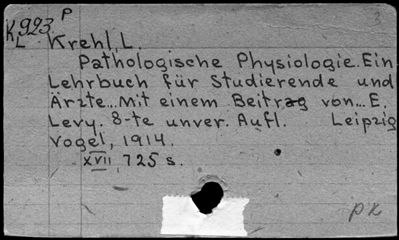 P
K 923 3
L
Krehl, L.
Pathologische Physiologie. Ein
Lehrbuch für Studierende und
Ärzte... Mit einem Beitrag von... E.
Levy. 8-te unver. Aufl. Leipzig
Vogel, 1914.
XVII, 725 s.
pk